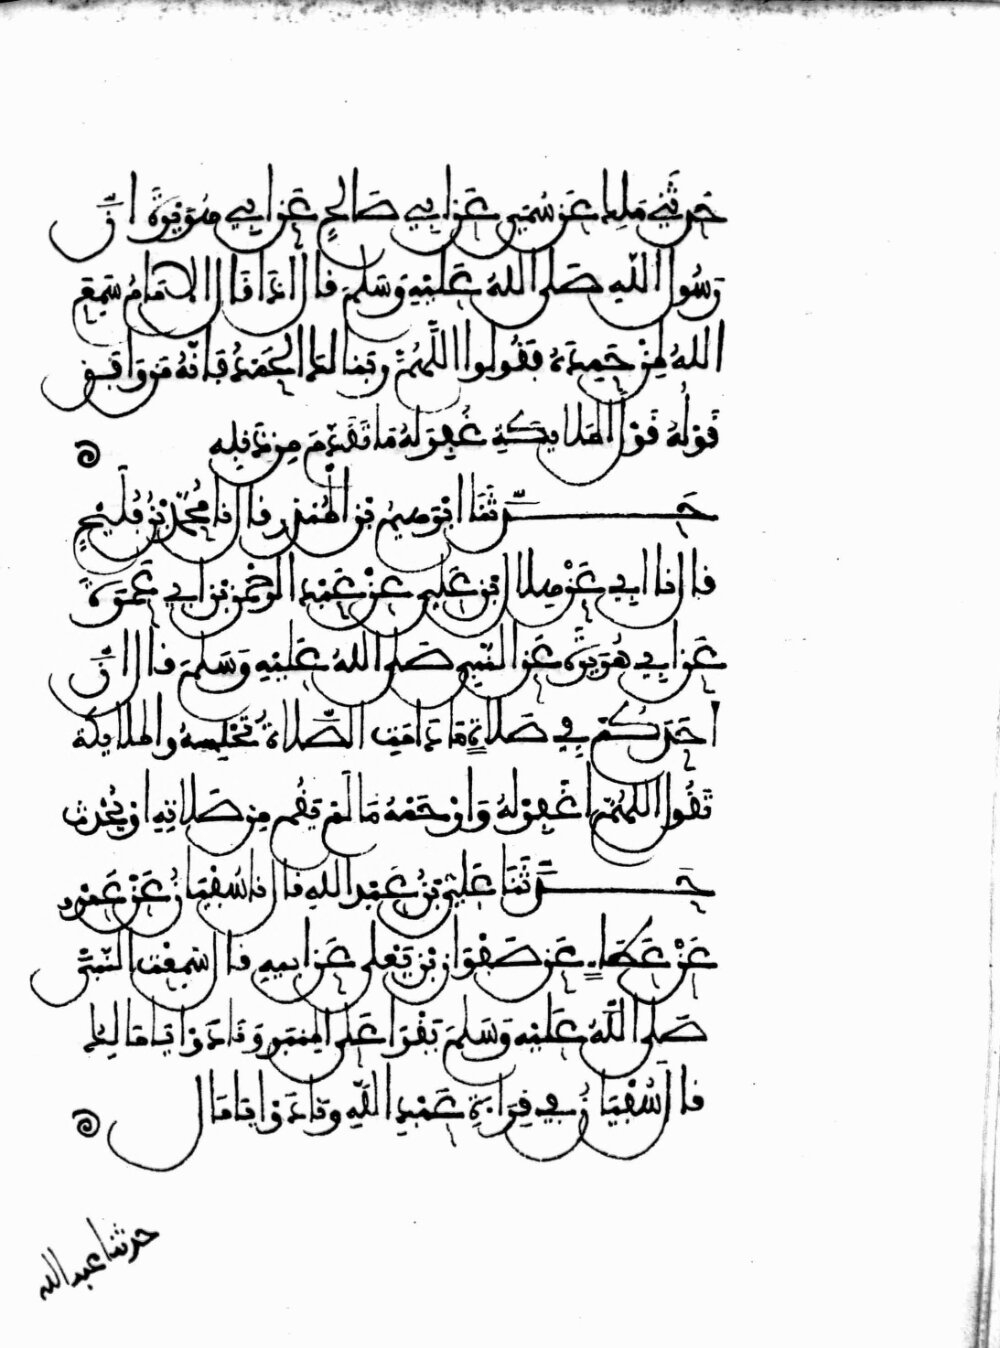 حَدَّثَنِي مَلِك عَن سُمَيّ عَن ابِي صَالِحٍ عَن ابِي هُرَيْرَةَ انَّ
رَسُولَ اللَّهِ صَلَّى اللهُ عَلَيْهِ وَسَلَّمَ قَالَ اذَا قَالَ الامَامُ سَمِعَ
اللهُ لِمَنْ حَمِدَهُ فَقُولُوا اللَّهُمَّ رَبَّنَا لَكَ الحَمْدُ فَانَّهُ مَن وَافَقَ
قَوْلُهُ قَوْلَ المَلايِكَةِ غُفِرَ لَهُ مَا تَقَدَّمَ مِن ذَنْبِهِ
حَدَّثَنَا ابْرَهِيمُ بْنُ المُنذِرِ قَالَ نا مُحَمَّدُ بْنُ فُلَيْحٍ
قال نا ابِي عَنْ هِلالِ بْنِ عَلِيٍّ عَنْ عَبْدِ الرَّحْمَنِ بْنِ ابِي عَمْرَةَ
عَنَ ابِي هُرَيْرَةَ عَنِ النَّبِيِّ صَلَّى اللهُ عَلَيْهِ وَسَلَّمَ قال انَّ
احَدَكُمْ فِي صَلاةٍ مَا دَامَتِ الصَّلاةُ تَحْبِسُهُ والملايكة
تَقُولُ اللَّهُمَّ اغْفِرْ لَهُ وَارْحَمْهُ مَا لَمْ يَقُمْ مِن صَلاتِهِ اوْ يُحْدِث
حَدَّثَنَا عَلِيُّ بْنُ عَبْدِ اللهِ قال نا سُفْيَانُ عَنْ عَمْرٍو
عَنْ عَطَاءٍ عَن صَفْوَانَ بْنِ يَعْلَى عَنَ ابِيهِ قال سَمِعْتُ النَّبِيَّ
صَلَّى اللَّهُ عَلَيْهِ وَسَلَّمَ يَقْرَأُ عَلَى المِنبَرِ وَنَادَوْا يَا مَالِكُ
قال سُفْيَانُ فِي قِرَاءَةِ عَبْدِ اللَّهِ وَنَادَوْا يَا مَالِ
حدثنا عبد الله